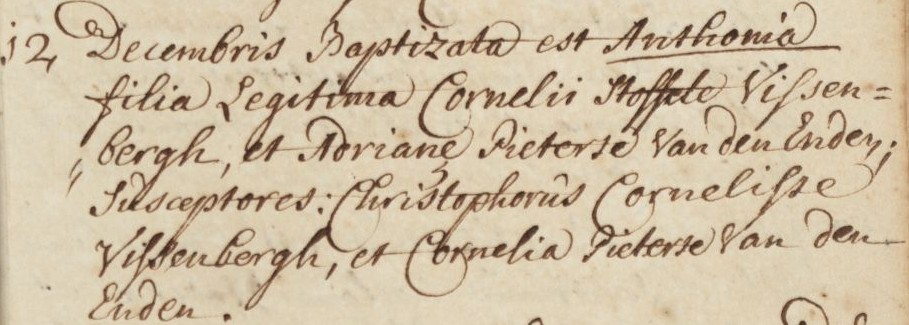 12 Decembris Baptizata est Anthonia
filia Legitima Cornelii Stoffele Vissen=
bergh, et Adrianę Pieterse Van den Enden;
Susceptores: Christophorus Cornelisse
Vissenbergh, et Cornelia Pieterse Van den
Enden.